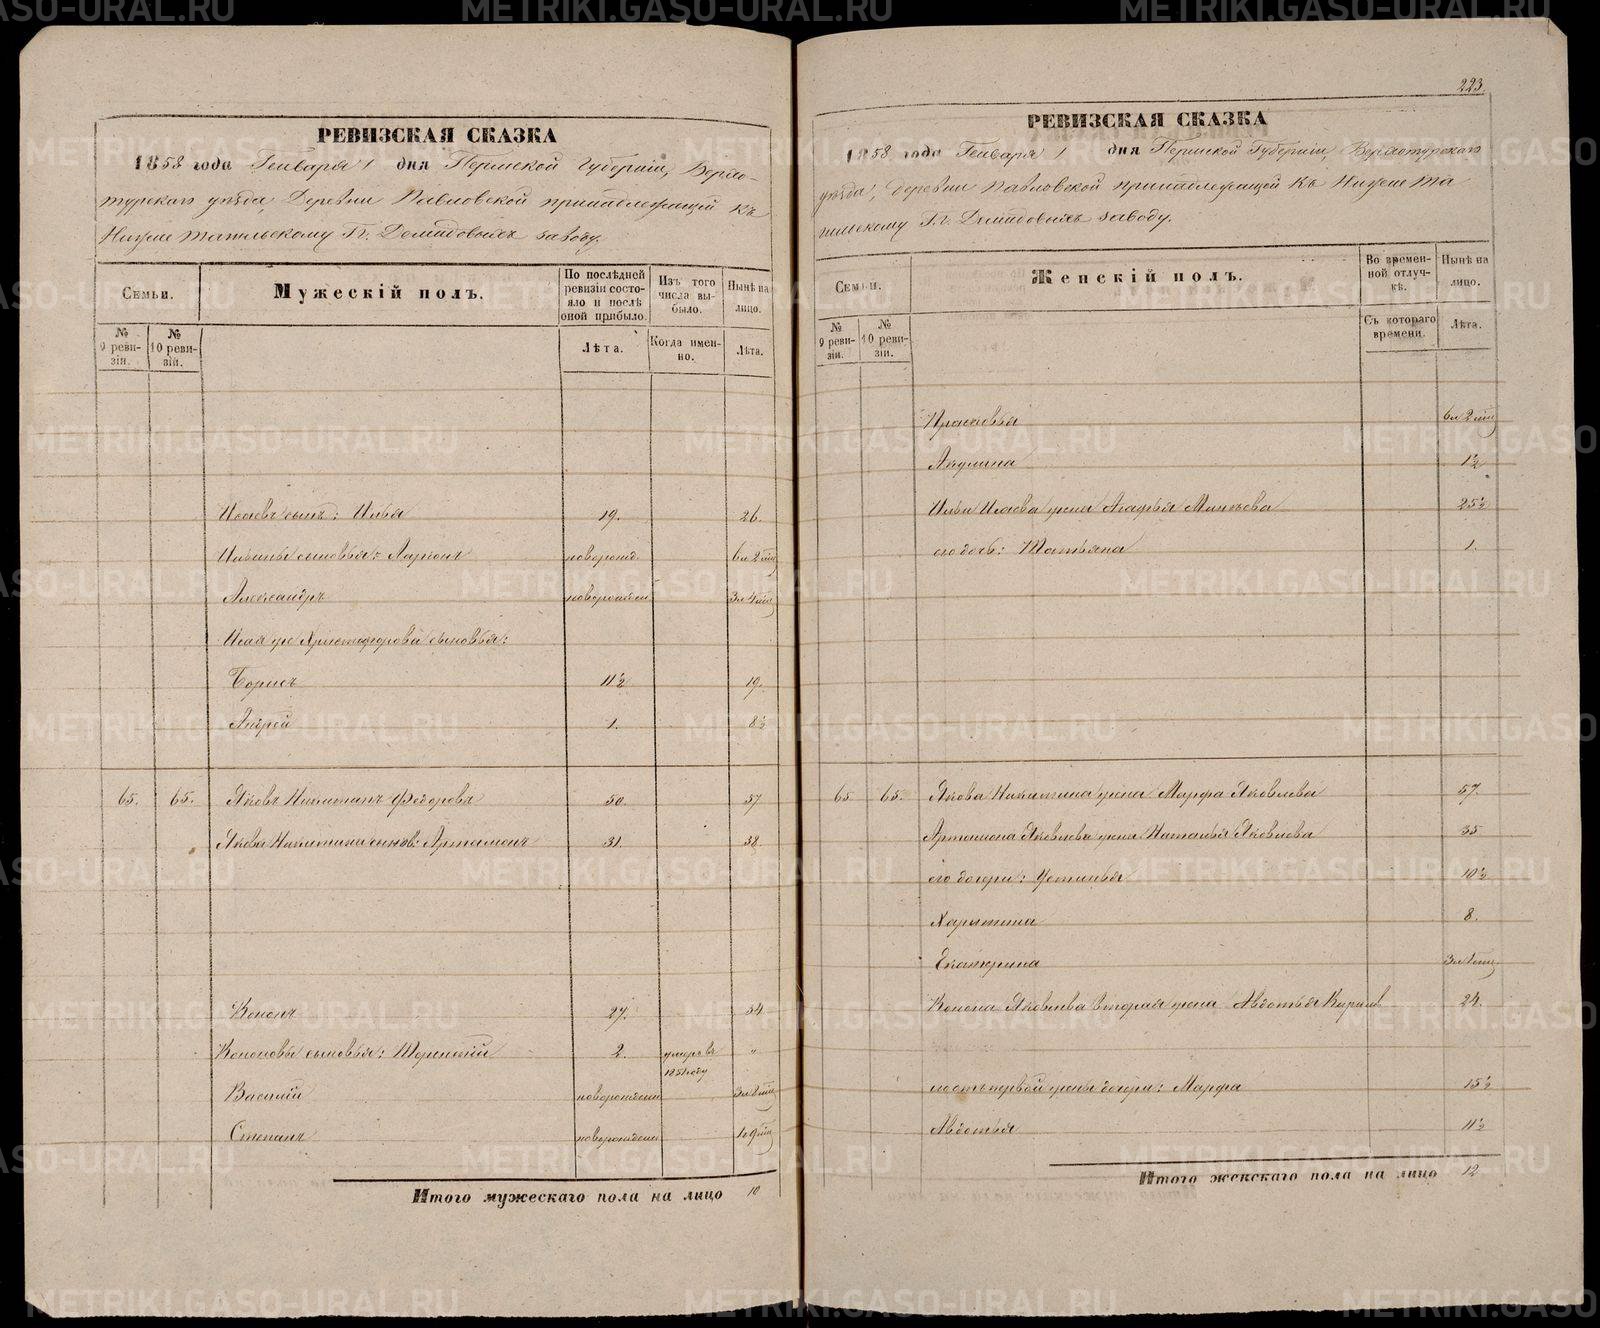 223.
РЕВИЗСКАЯ СКАЗКА
1858 года Генваря 1 дня Пермской Губерніи, Верхо-
турскаго уѣзда, Деревни Павловской принадлежащей къ
Нижне Тагильскому Г.г. Демидовыхъ заводу.
Семьи.
Мужескій полъ.
По послѣдней ревизіи состояло и послѣ оной прибыло.
Изъ того числа выбыло.
Нынѣ на лицо.
№ 9 ревизіи.
№ 10 ревизіи.
Лѣта.
Когда именно.
Лѣта.
Исаевъ сынъ: Илья 19. 26.
Ильины сыновья: Ларіонъ новорожд. 6 л 2 мѣс
Александръ новорожден 3 л 4 мѣс
Исая же Христофорова сыновья:
Борисъ 11½ 19.
Андрей 1. 8½
65. 65. Яковъ Никитинъ Федоровъ 50. 57.
Якова Никитина сыновь: Артамонъ 31. 38.
Кононъ 27. 34.
Кононовы сыновья: Терентій 2. умеръ въ 1851 году "
Василій новорожден 3 л 8 мѣс
Степанъ новорожден 1 г 9 мѣс
Итого мужескаго пола на лицо 10
РЕВИЗСКАЯ СКАЗКА
1858 года Генваря 1. дня Пермской Губерніи, Верхотурскаго
уѣзда, Деревни Павловской принадлежащей къ Нижне Та
гильскому Г.г. Демидовыхъ заводу.
Семьи.
Женскій полъ.
Во временной отлучкѣ.
Нынѣ на лицо.
№ 9 ревизіи.
№ 10 ревизіи.
Съ котораго времени.
Лѣта.
Прасковья 6 л 2 мѣс
Акулина 1½
Ильи Исаева жена Агафья 25½
его дочь: Татьяна 1.
65 65. Якова Никитина жена Марфа Яковлева 57.
Артамона Яковлева жена Наталья Яковлева 35
его дочери: Устинья 10½
Харитина 8.
Екатерина 3 л 1 мѣс
Конона Яковлева вторая жена Авдотья Кирилов 24.
первой жены дочери: Марфа 15½
Авдотья 11½
Итого женскаго пола на лицо 12
METRIKI.GASO-URAL.RU